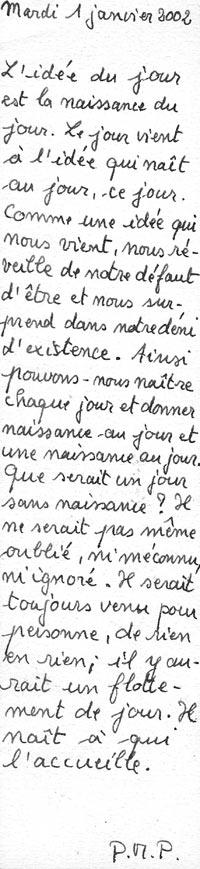 Mardi 1 janvier 2002
L'idée du jour
est la naissance du
jour. Le jour vient
à l'idée qui naît
au jour, ce jour.
Comme une idée qui
nous vient, nous ré-
veille de notre défaut
d'être et nous sur-
prend dans notre déni
d'existence. Ainsi
pouvons-nous naître
chaque jour et donner
naissance au jour et
une naissance au jour.
Que serait un jour
sans naissance ? Il
ne serait pas même
oublié, ni méconnu,
ni ignoré. Il serait
toujours venu pour
personne, de rien
en rien ; il y au-
rait un flotte-
ment de jour. Il
naît à qui
l'accueille.
P.M.P.